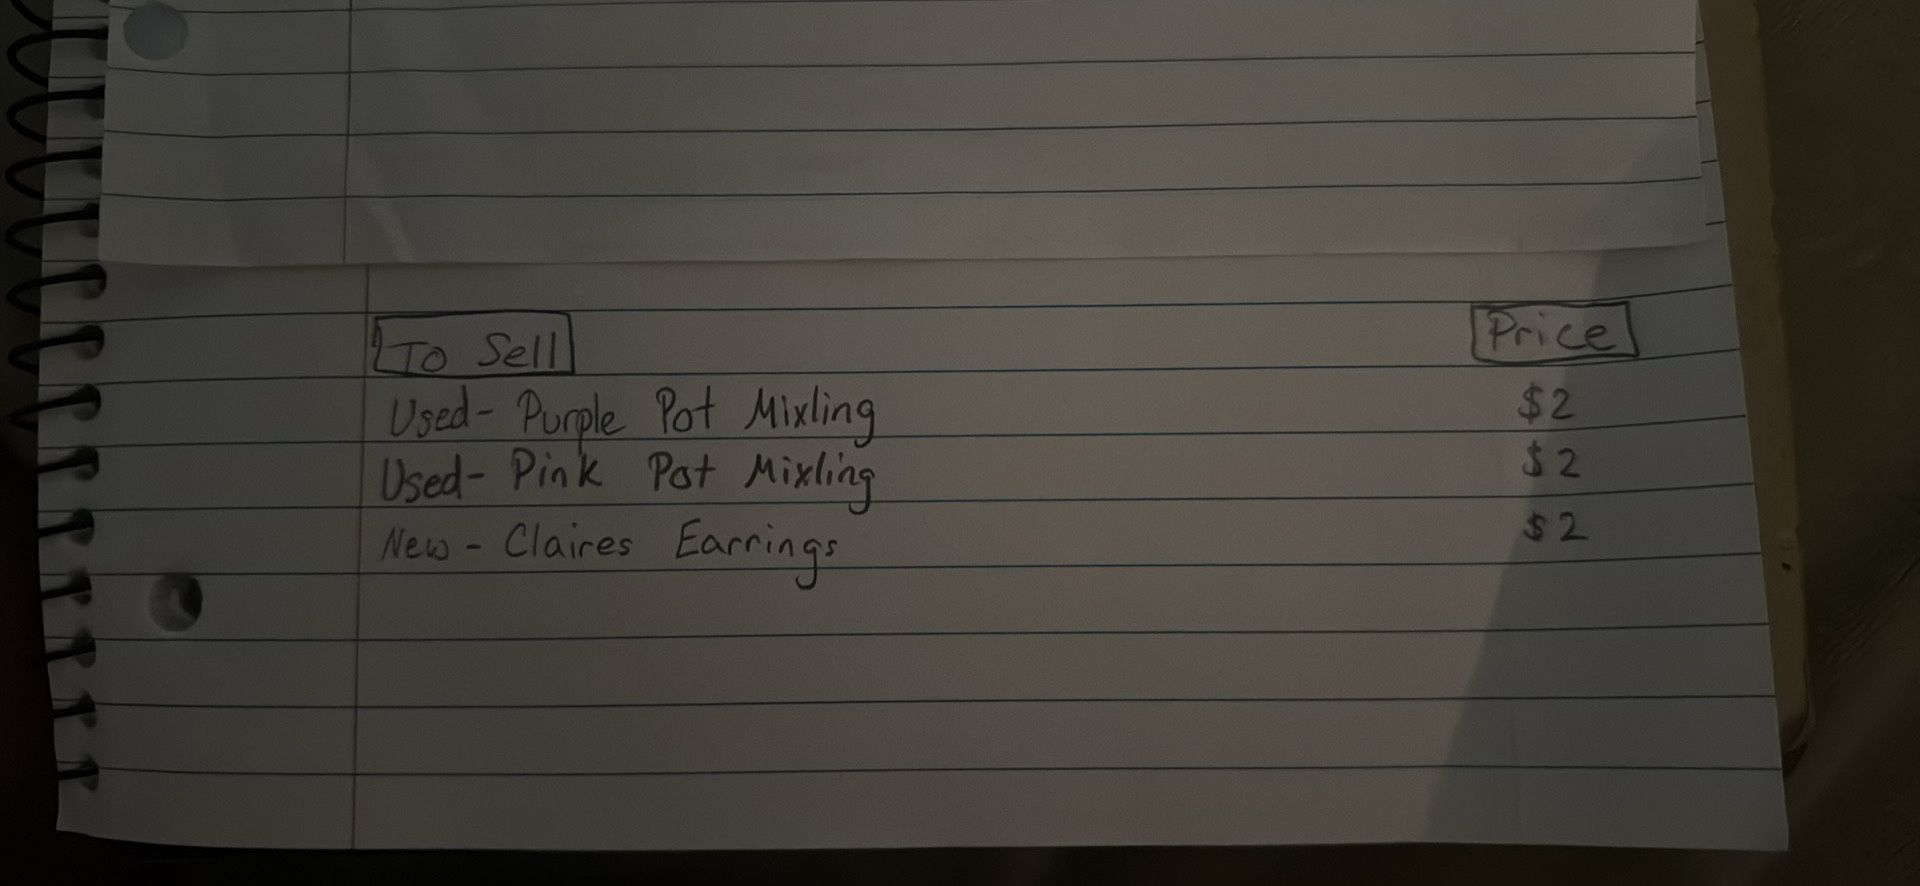 To Sell Price
Used- Purple Pot Mixling $2
Used- Pink Pot Mixling $2
New- Claires Earrings $2